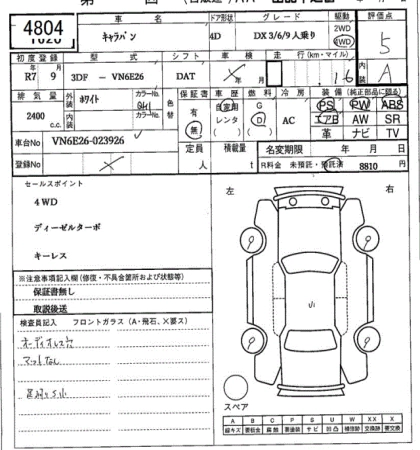 4804
車名 ドア形状 グレード 駆動 評価点
キャラバン 4D DX 3/6/9 人乗り 2WD 4WD 5
初度登録 型式 シフト 車検 走行(km・マイル) 内装
R7 9 3DF − VN6E26 DAT 年 月 1 6 A
排気量 外装 ホワイト カラーNo. 色替 保証書 車歴 燃料 冷房 装備(純正部品に限る)
2400 c.c. 内装 カラーNo. 有 無 自家用 レンタ G D AC PS PW ABS
エアB AW SR
革 ナビ TV
車台No VN6E26-023926
定員 人 積載量 t 名変期限 年 月 日
登録No R料金 未預託・預託済 8810 円
セールスポイント
4WD
ディーゼルターボ
キーレス
※注意事項記入欄(修復・不具合箇所および状態等)
保証書無し
取説後送
検査員記入 フロントガラス(A・飛石、×要ス)
オーディオレス
マットなし
左 右
スペア
A B C P S U W X XX ×
線キズ 要板金 腐蝕 要塗装 サビ 凹凸 補修跡 交換跡 要交換